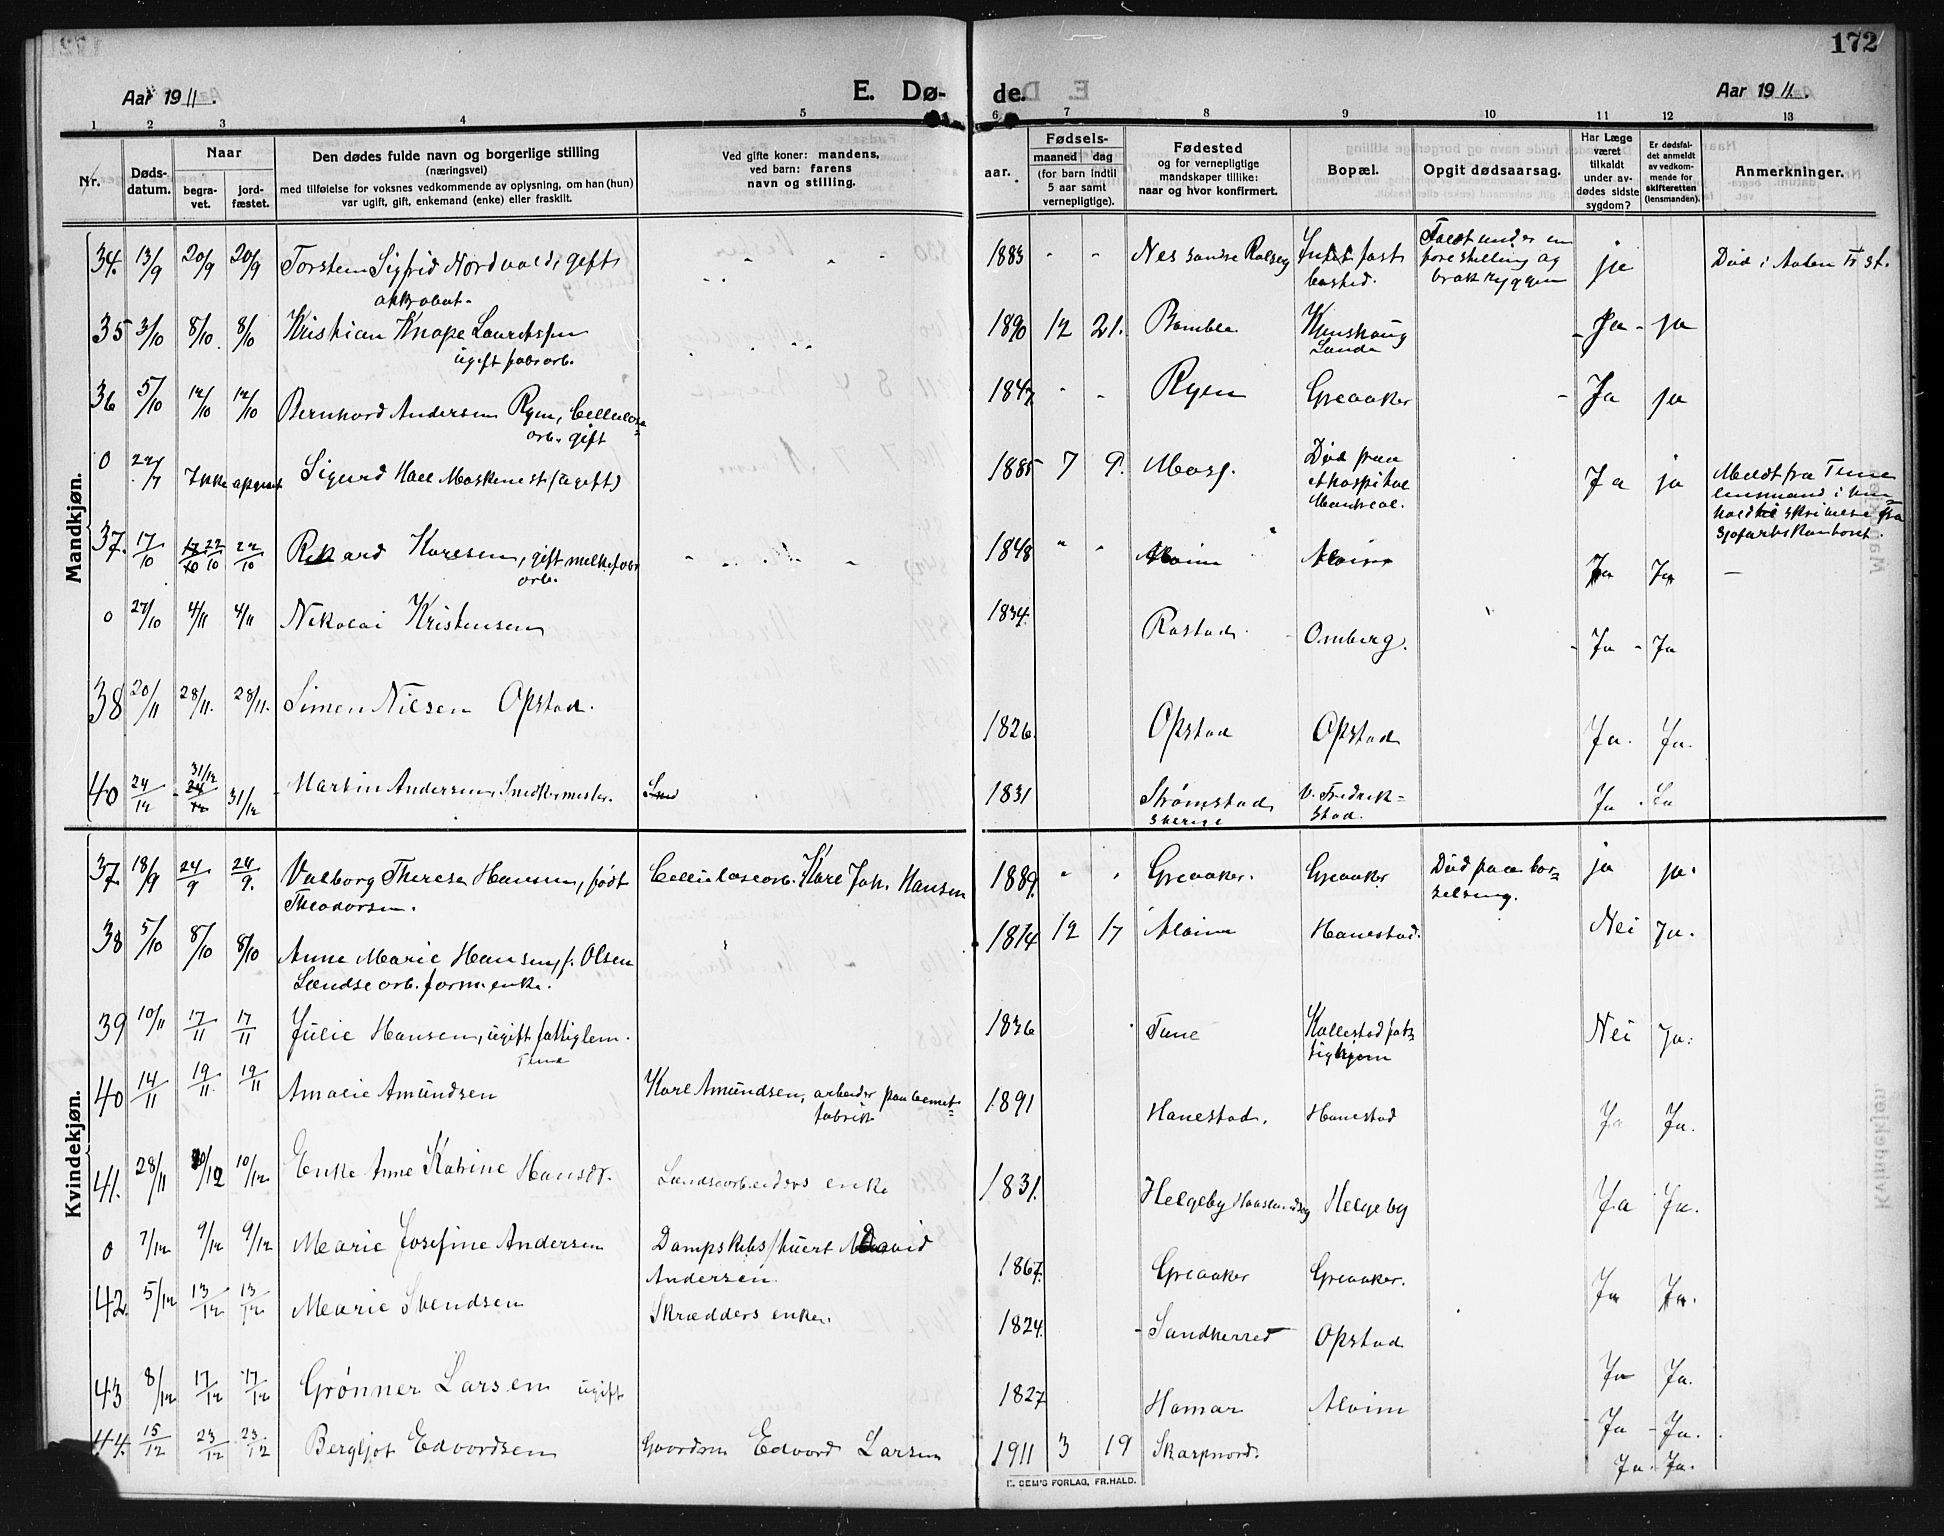 172
Aar 1911.
E. Dø-
de.
Aar 1911.
1 2 3 4 5 6 7 8 9 10 11 12 13
Nr.
Døds-
datum.
Naar
begra-
vet.
jord-
fæstet.
Den dødes fulde navn og borgerlige stilling
(næringsvei)
med tilføielse for voksnes vedkommende av oplysning, om han (hun)
var ugift, gift, enkemand (enke) eller fraskilt.
Ved gifte koner: mandens,
ved barn: farens
navn og stilling.
Fødsels-
aar.
maaned dag
(for barn indtil
5 aar samt
vernepligtige).
Fødested
og for vernepligtige
mandskaper tillike:
naar og hvor konfirmert.
Bopæl.
Opgit dødsaarsag.
Har Læge
været
tilkaldt
under av-
dødes sidste
sygdom?
Er dødsfal-
det anmeldt
av vedkom-
mende for
skifteretten
(lensmanden).
Anmerkninger.
Mandkjøn.
34. 13/9 20/9 20/9 Torsten Sigfrid Nordvald, gift
akrobat. 1883 " " Nes søndre Intet fast
bosted. under en
forestilling og
brak ryggen ja Død i
35 3/10 8/10 8/10 Kristian Knape Lauritssen
ugift fabrarb. 1890 12 21. Bamble Ja ja
36 5/10 12/10 12/10 Bernhard Andersen Ryen, Cellulose
arb. gift 1847 " " Ryen Greaaker Ja ja
0 Ikke Sigurd (ugift) 1885 7 9. Moss. Død paa
hospital
Montreal. Ja ja Meldt fra Tune
lensmand i hen
hold til skrivelse fra
37. 17/10 22/10 22/10 Rikard Karlsen, gift melkefabr
arb. 1848 " " Alvim Alvim Ja Ja
0 27/10 4/11 4/11 Nikolai Kristensen 1834. Rostad Omberg. Ja Ja
38 20/11 28/11. 28/11. Simen Nilsen Opstad. 1826. Opstad Opstad Ja. Ja.
40 24/12 31/12 31/12 Martin Andersen, Snedkermester. 1831 Strømstad
Sverige V. Fredrik=
stad. Ja Ja
Kvindekjøn.
37 18/9 24/9 24/9. Valborg Therese Hansen, født
Theodorsen. Cellulosearb. Karl Joh. Hansen 1889. " " Greaaker. Greaaker Død paa bar-
selseng. ja ja.
38 5/10 8/10 8/10 Anne Marie Hansen, f. Olsen
Lændsearb.form. enke. 1814 12 17 Alvim Hanestad. Nei Ja.
39 10/11 17/11 17/11 Julie Hansen, ugift fattiglem.
Tune 1836 Tune Kallestad fat=
tighjem Nei Ja.
40 14/11 19/11. 19/11 Amalie Amundsen Karl Amundsen, arbeider paa cement=
fabrik 1891 Hanestad. Hanestad Ja Ja.
41. 28/11 10/12 10/12 Enke Anne Katrine Hansdr. Lændsearbeiders enke 1831. Helgeby Helgeby Ja Ja.
0 7/12 9/12 9/12 Marie Josefine Andersen Dampskibs David
Andersen. 1867. Greaaker Greaaker. Ja Ja.
42. 5/12 13/12 13/12 Marie Svendsen Skrædders enke. 1824. Sandherred Opstad Ja Ja.
43 8/12 17/12 17/12 Grønner Larsen ugift 1827 Hamar Alvim Ja Ja.
44. 15/12 23/12 23/12 Bergljot Edvardsen Gaardsm Edvard Larsen 1911 3 19 Skarpnord. Ja. Ja.
E. SEM'S FORLAG, FR.HALD.